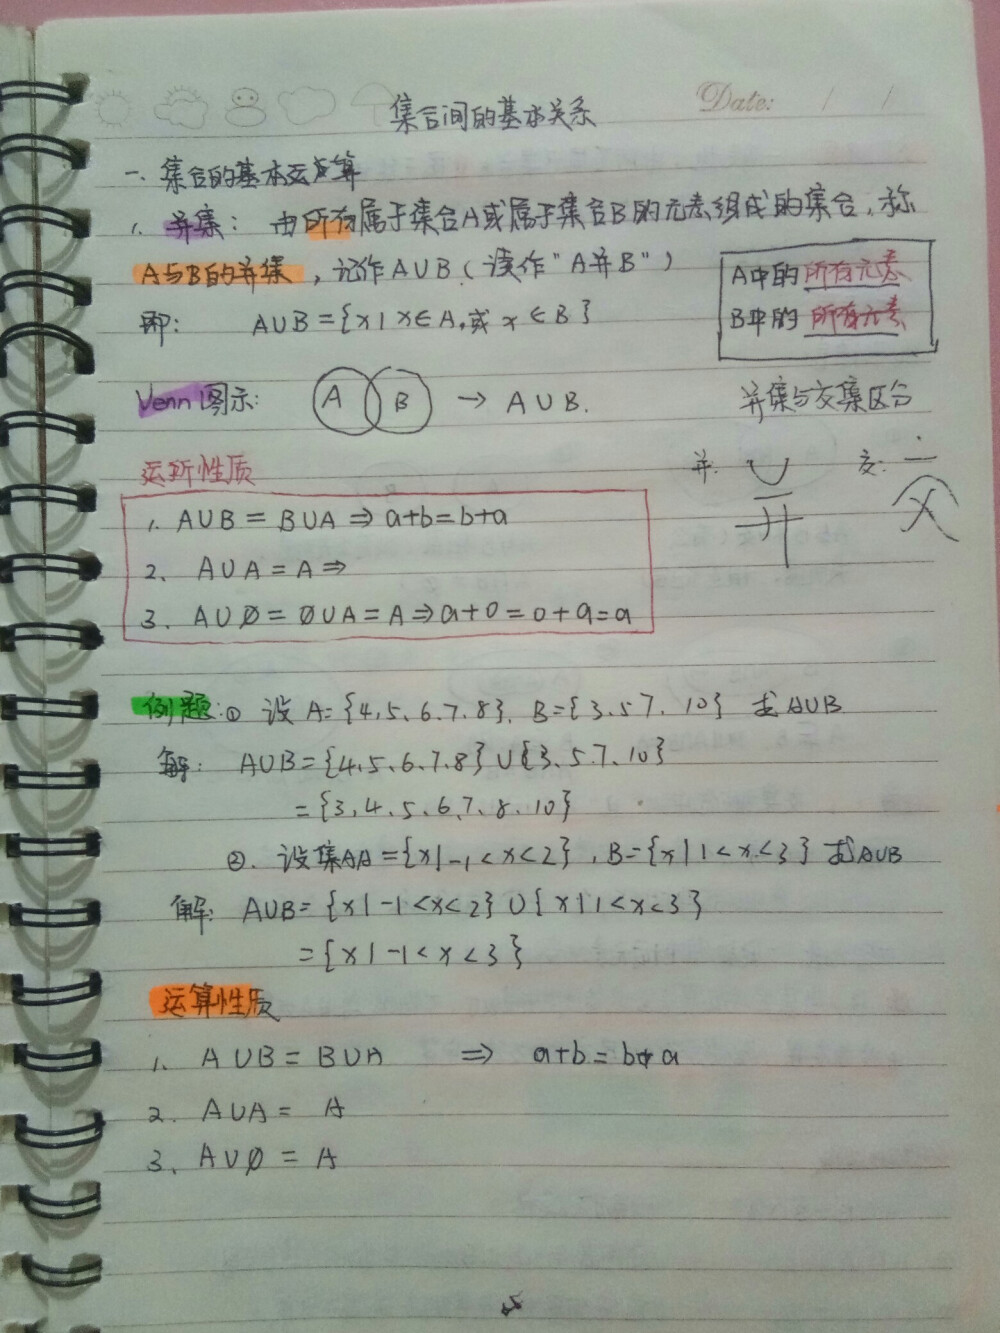 Date: / /
集合间的基本关系
一、集合的基本运算
1. 并集: 由所有属于集合A或属于集合B的元素组成的集合,称
A与B的并集,记作A∪B(读作"A并B")
A中的所有元素
B中的所有元素
即: A∪B={x|x∈A,或x∈B}
Venn图示: A B → A∪B.
并集与交集区分
并: 交:
运祘性质
1. A∪B=B∪A⇒a+b=b+a
2. A∪A=A⇒
3. A∪∅=∅∪A=A⇒a+0=0+a=a
例题:① 设A={4,5、6,7,8}, B={3,5 7. 10} 求A∪B
解: A∪B={4,5、6,7,8}∪{3、5 7、10}
={3,4、5、6、7、8、10}
②. 设集AA={x|-1<x<2}, B={x|1<x<3} 求A∪B
解: A∪B={x|-1<x<2}∪{x|1<x<3}
={x|-1<x<3}
运算性质
1. A∪B=B∪A ⇒ a+b=b+a
2. A∪A= A
3、A∪∅=A